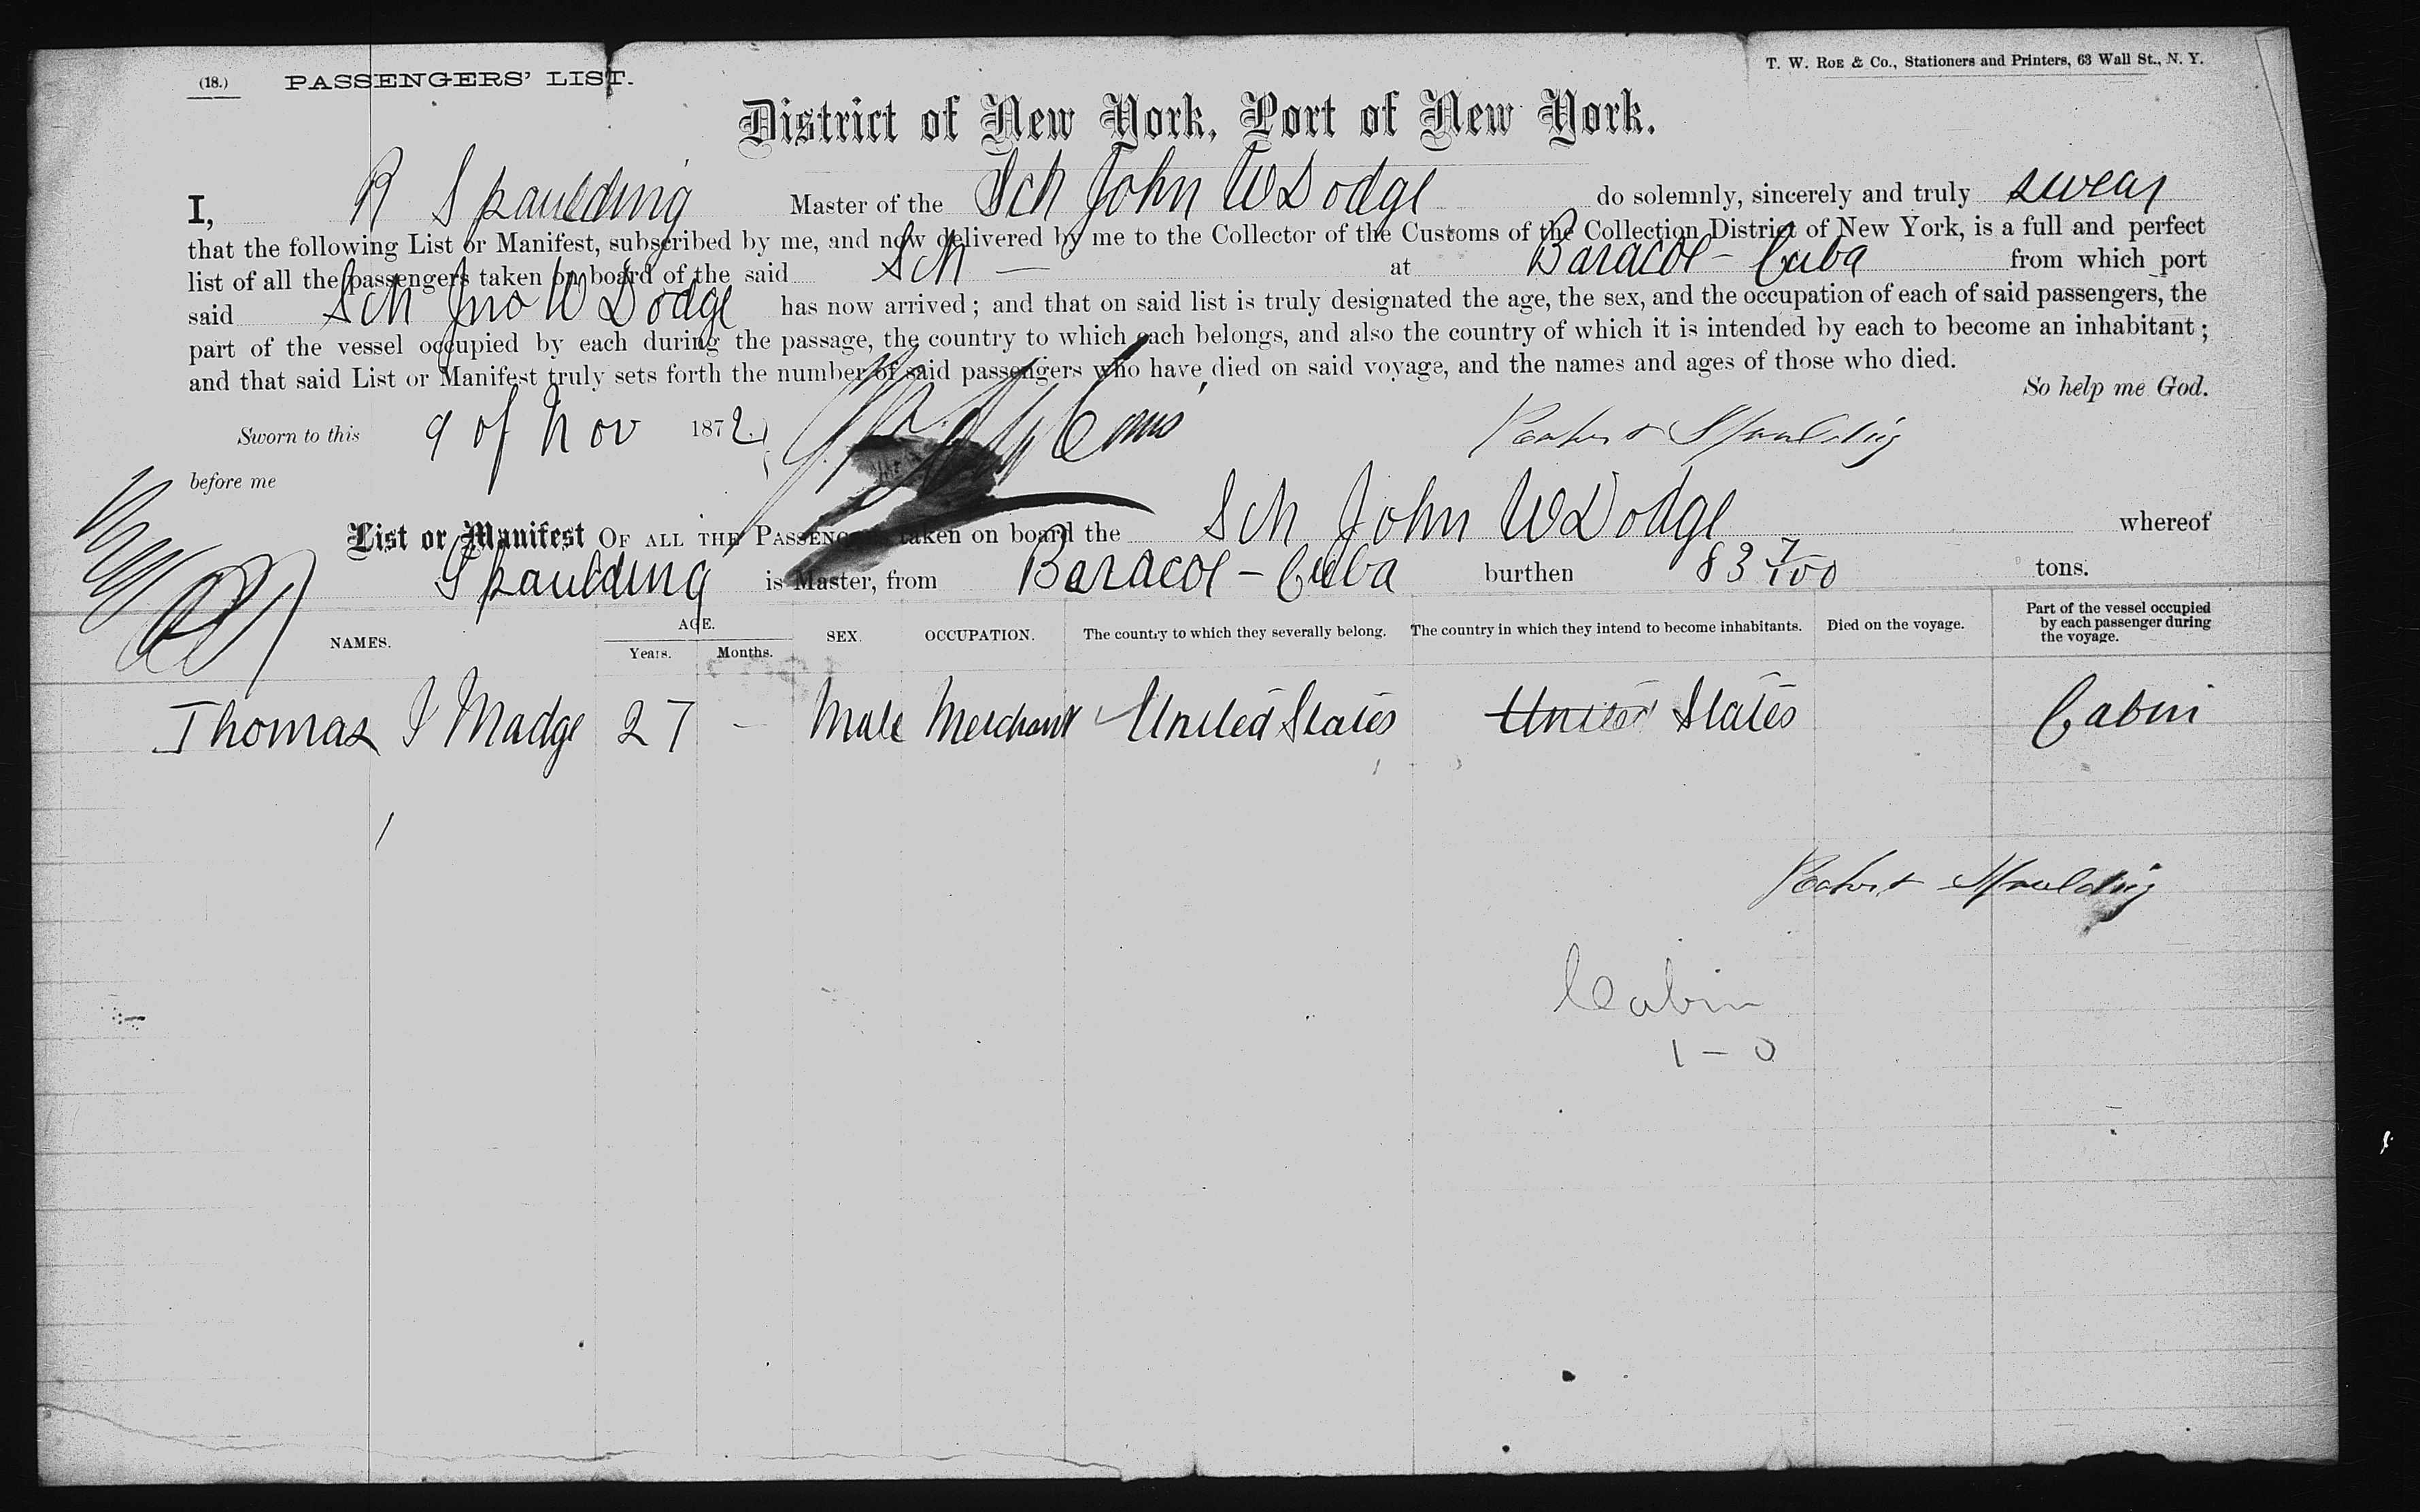 (18.) PASSENGERS' LIST.
T. W. ROE & Co., Stationers and Printers, 63 Wall St., N. Y.
District of New York, Port of New York.
I, R Spaulding Master of the Sch John W Dodge do solemnly, sincerely and truly swear
that the following List or Manifest, subscribed by me, and now delivered by me to the Collector of the Customs of the Collection District of New York, is a full and perfect
list of all the passengers taken on board of the said Sch — at Baracoe - Cuba from which port
said Sch Jno W Dodge has now arrived; and that on said list is truly designated the age, the sex, and the occupation of each of said passengers, the
part of the vessel occupied by each during the passage, the country to which each belongs, and also the country of which it is intended by each to become an inhabitant;
and that said List or Manifest truly sets forth the number of said passengers who have died on said voyage, and the names and ages of those who died.
So help me God.
Sworn to this 9 of Nov 1872.
Robert Spaulding
before me
List or Manifest OF ALL THE PASSENGERS taken on board the Sch John W Dodge whereof
Spaulding is Master, from Baracoe - Cuba burthen 83 7/100 tons.
NAMES. AGE. Years. Months. SEX. OCCUPATION. The country to which they severally belong. The country in which they intend to become inhabitants. Died on the voyage. Part of the vessel occupied by each passenger during the voyage.
Thomas I Madge 27 — Male Merchant United States United States Cabin
1
Robert Spaulding
Cabin
1 - 0